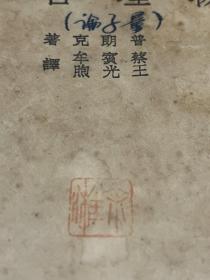 (量子論)
普朗克 著
蔡賓牟
王光煦 譯